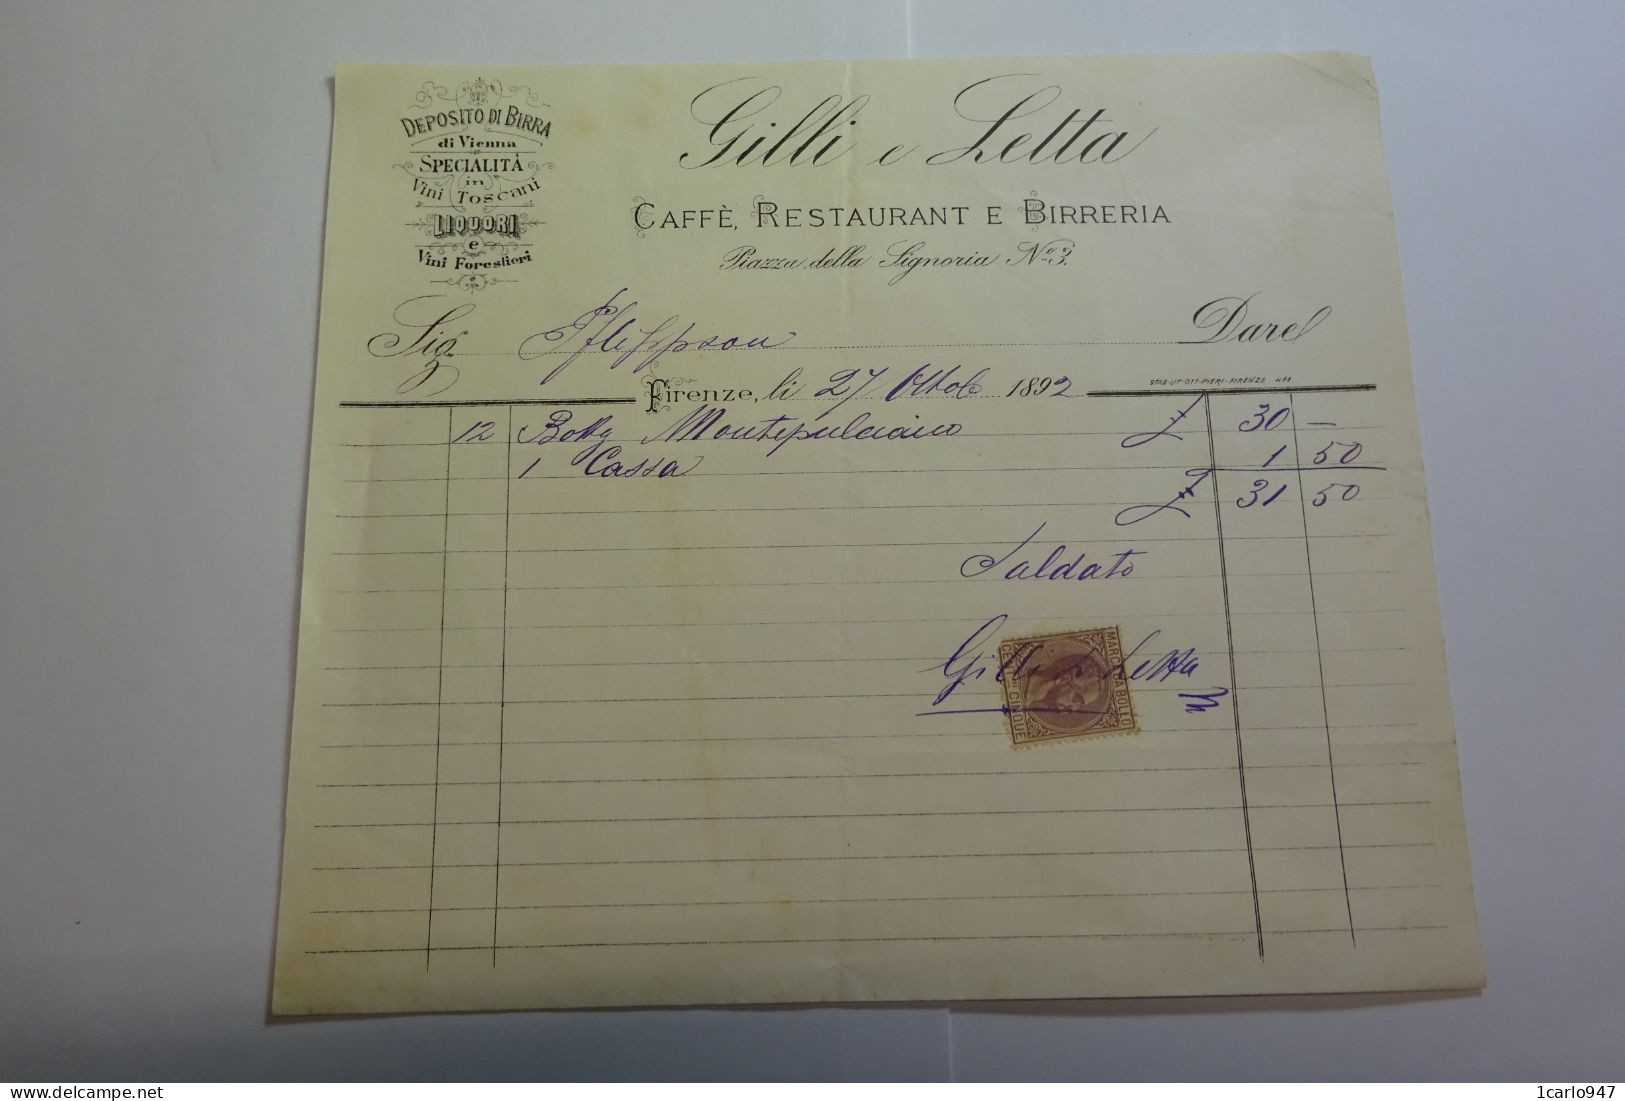 DEPOSITO DI BIRRA
di Vienna
SPECIALITÀ
in
Vini Toscani
LIQUORI
e
Vini Forestieri
Gilli e Letta
CAFFÈ, RESTAURANT E BIRRERIA
Piazza della Signoria No. 3.
Sig.
Dare
STAB-LIT-OTT-PIERI-FIRENZE
Firenze, li 27 Ottob 1892
12 Bottg Montepulciano £ 30 —
1 Cassa 1 50
£ 31 50
Saldato
Gilli e Letta
MARCA DA BOLLO
CENT. CINQUE
www.delcampe.net
1carlo947